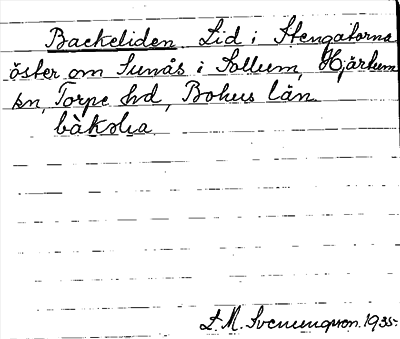 Backeliden. Lid i Stengatorna
öster om Sunås i Sollum, Hjärtum
sn, Torpe hd, Bohus län.
bàkɘlia
L. M. Svenungsson. 1935.